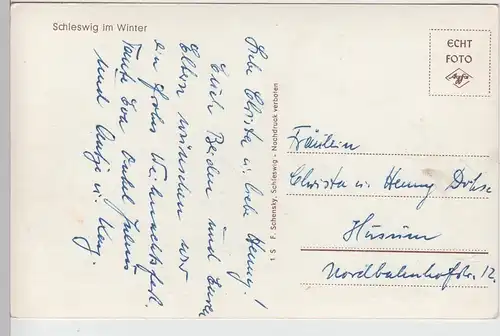 Schleswig im Winter
Liebe Christa u. liebe Henny!
Euch Beiden und Euren
Eltern wünschen wir
ein frohes Weihnachtsfest.
Tante Eva Onkel Julius
und Antje u. Kay.
1 S F. Schensky, Schleswig - Nachdruck verboten
ECHT
FOTO
Agfa
Fräulein
Christa u. Henny Döhse
Husum
Nordbahnhofstr. 12.